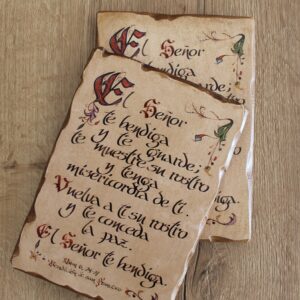 El Señor
bendiga
El Señor
te bendiga
y te guarde;
te muestre su rostro
y tenga
misericordia de ti.
Vuelva a ti su rostro
y te conceda
la paz.
El Señor te bendiga.